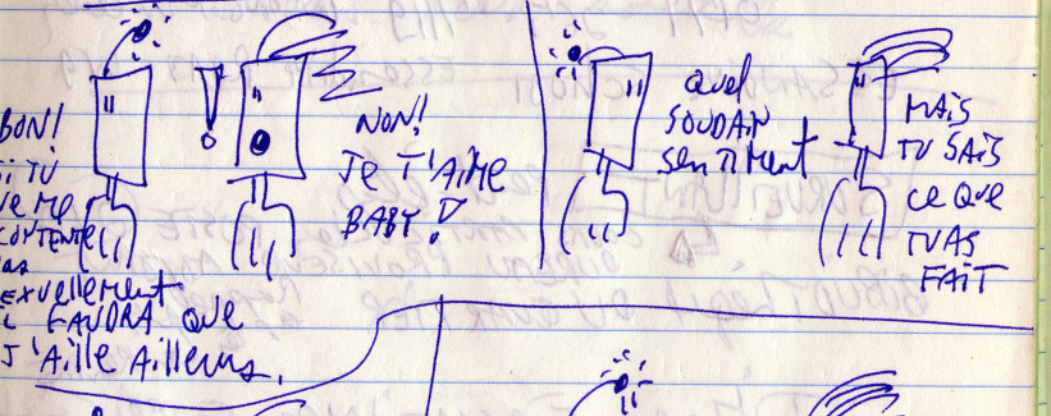 BON!
Si TU
Ne Me
CONTENTE
Pas
SEXUellement
iL FAUDRA QUE
J'Aille Ailleurs.
NON!
Je T'AiMe
BABY!
Quel
SOUDAiN
SenTiMent
MAiS
TU SAiS
Ce Que
TU AS
FAiT